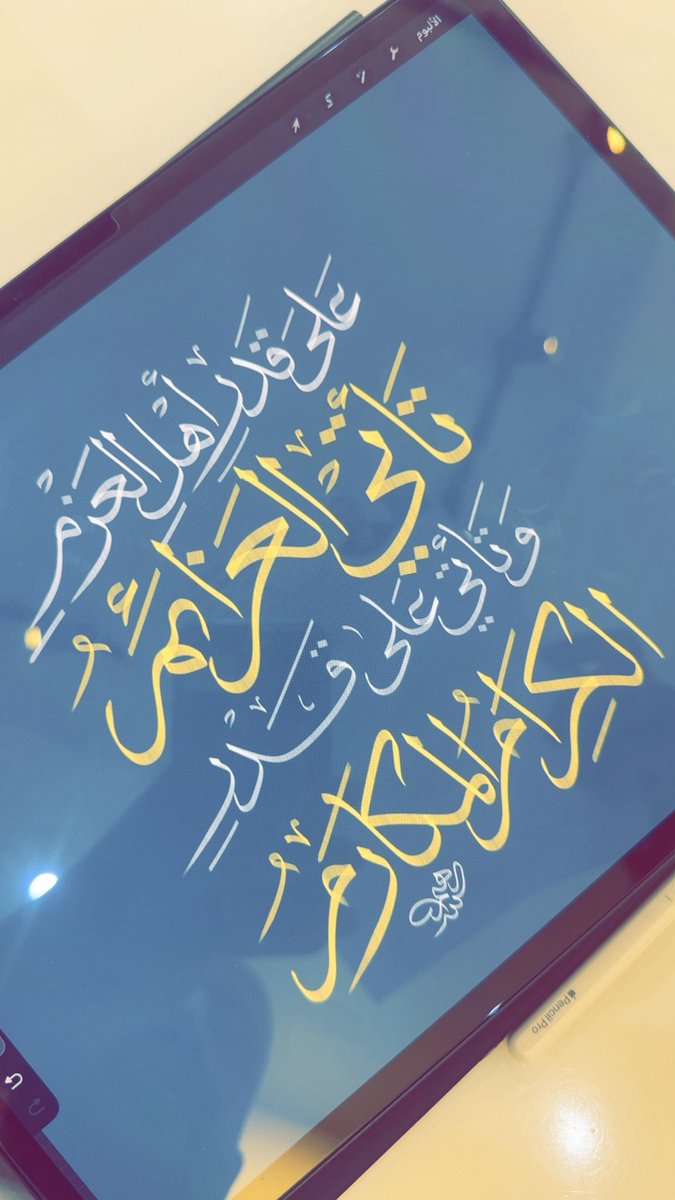 الألبوم
عَلَى قَدَرِ أَهْلِ العَزْمِ
تَأْتِي العَزَائِمُ
وَتَأْتِي عَلَى قَدْرِ
الكِرَامِ المَكَارِمُ
Pencil Pro